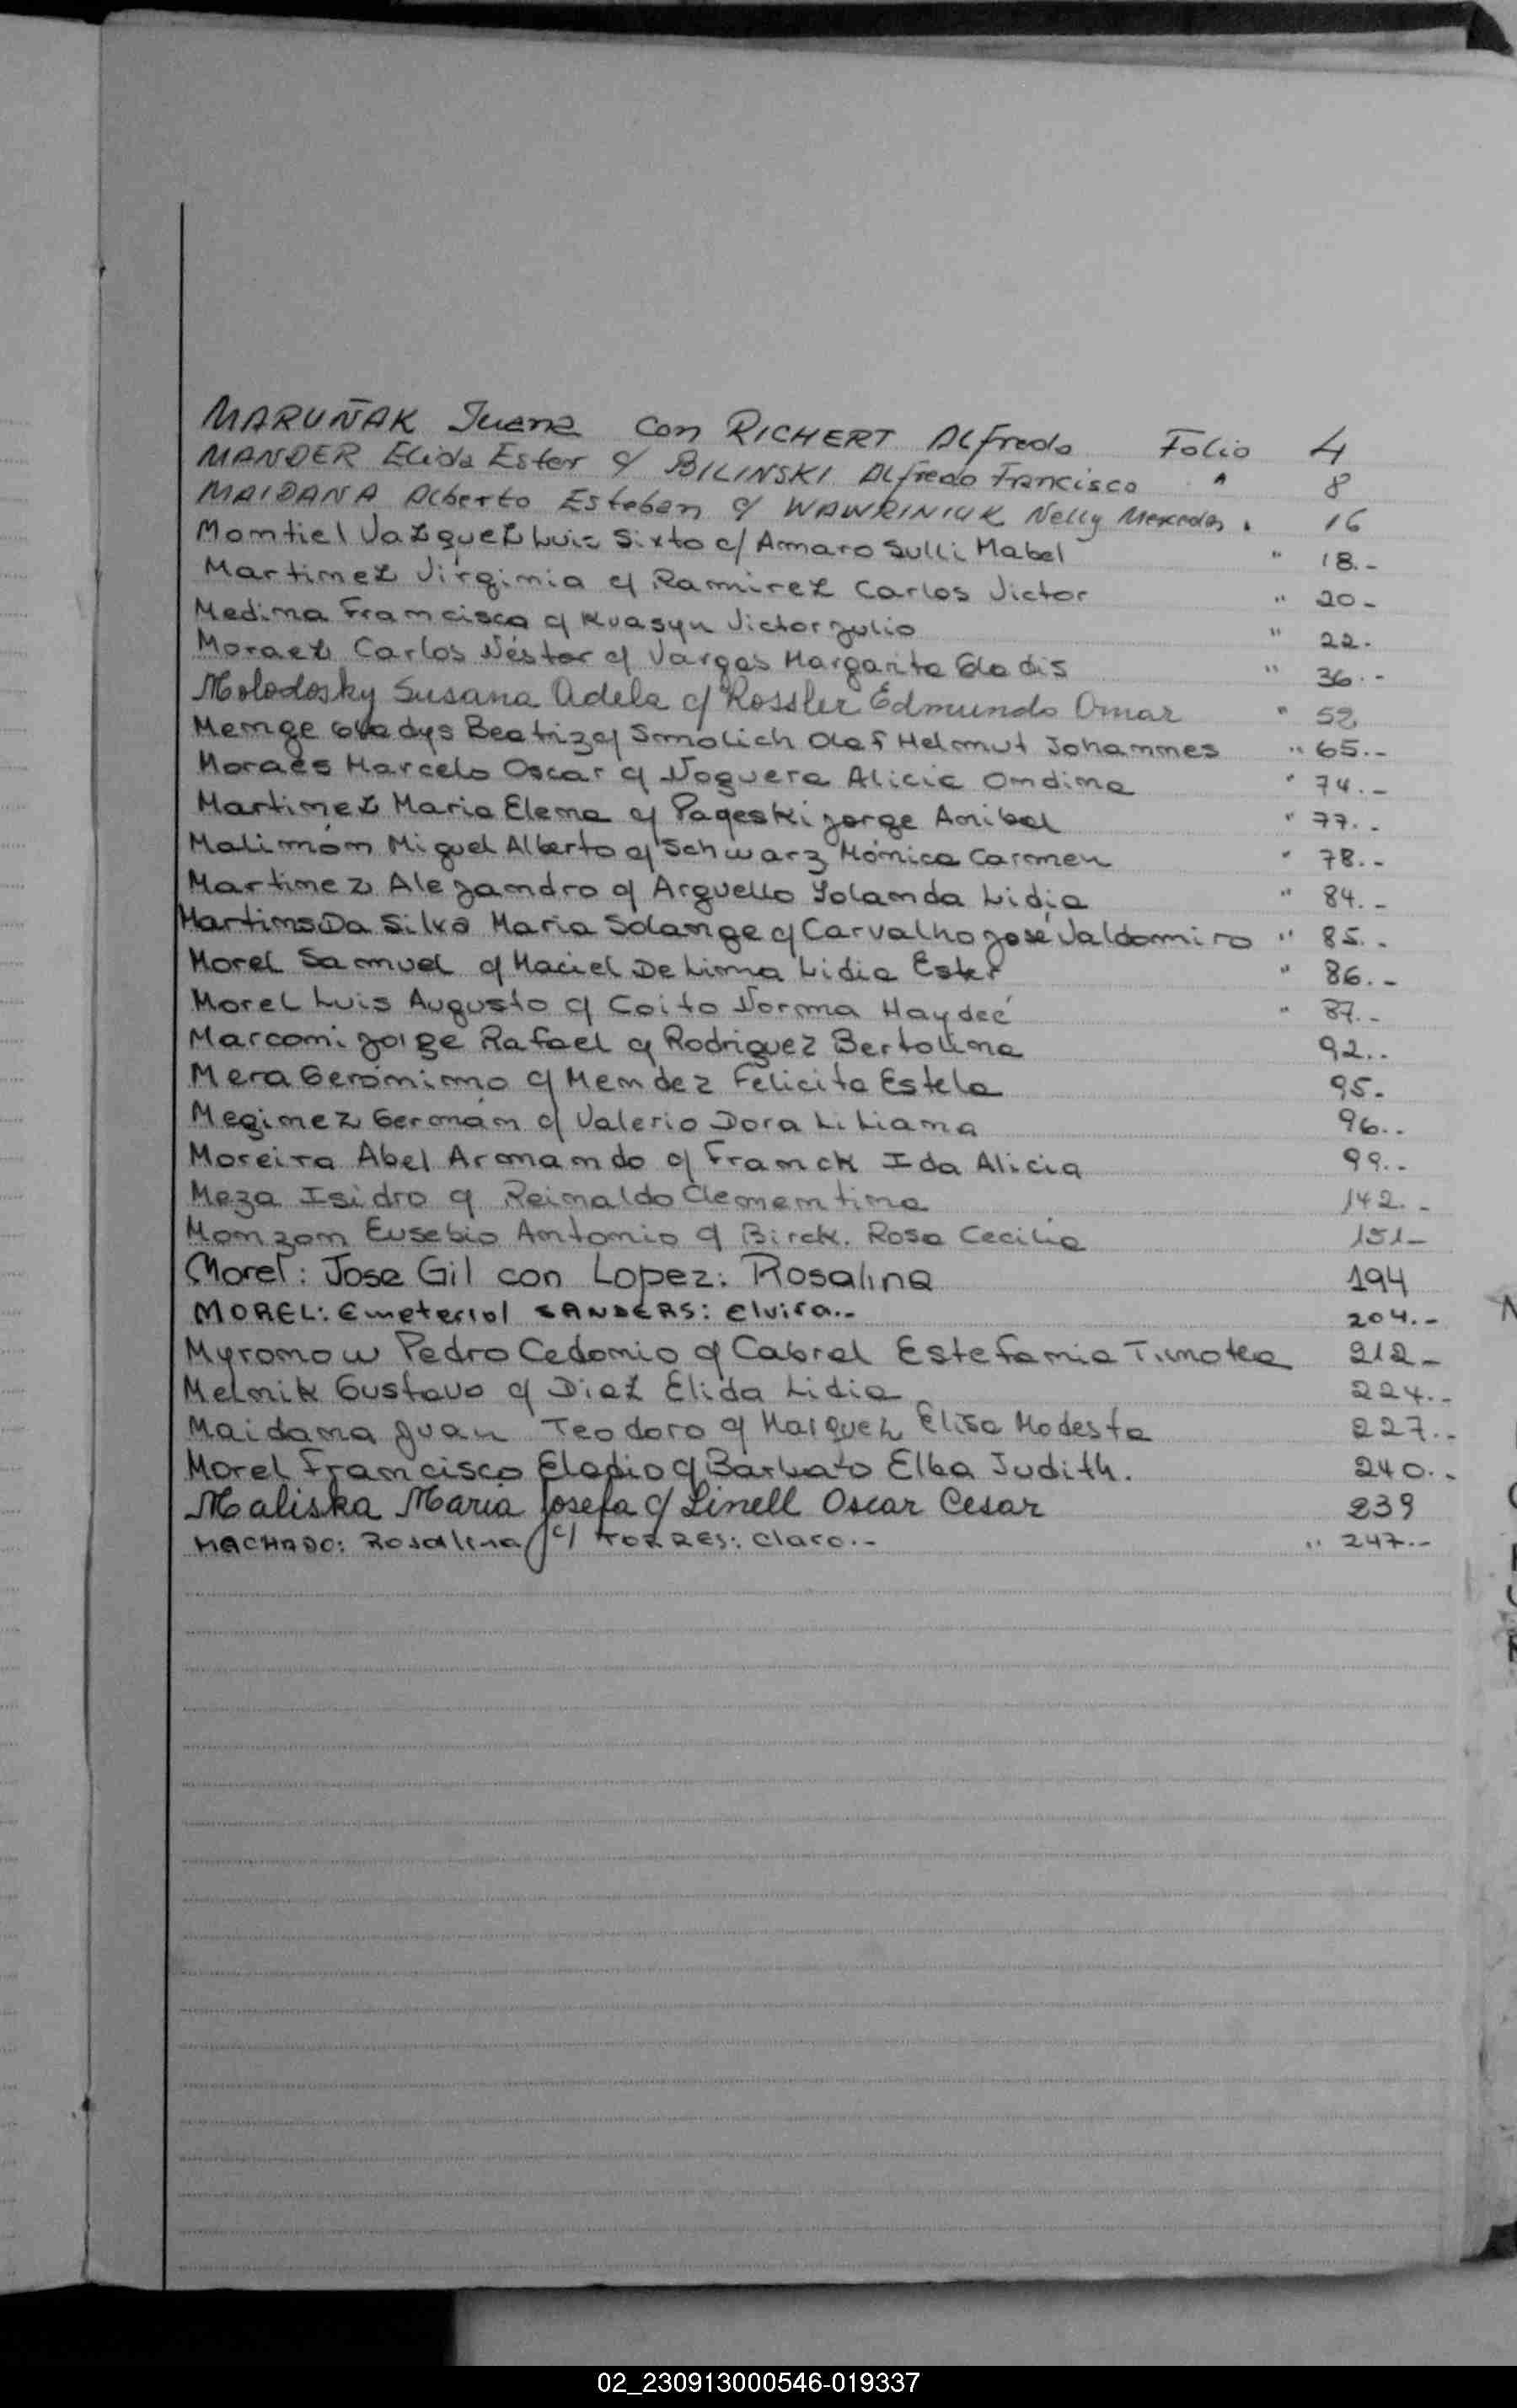 MARUÑAK Juana con RICHERT Alfredo Folio 4
MANDER Elida Ester c/ BILINSKI Alfredo Francisco " 8
MAIDANA Alberto Esteban c/ WAWRINIUK Nelly Mercedes " 16
Montiel Vazquez Luis Sixto c/ Amaro Sulli Mabel " 18.-
Martinez Virginia c/ Ramirez Carlos Victor " 20-
Medina Francisca c/ Kuasyn Victor Julio " 22.
Moraez Carlos Néstor c/ Vargas Margarita Gladis " 36.-
Molodosky Susana Adela c/ Rossler Edmundo Omar " 52
Menge Gladys Beatriz c/ Smolich Olaf Helmut Johannes " 65.-
Moraes Marcelo Oscar c/ Noguera Alicia Ondina " 74.-
Martinez Maria Elena c/ Pageski Jorge Anibal " 77..
Malimón Miguel Alberto c/ Schwarz Mónica Carmen " 78.-
Martinez Alejandro c/ Arguello Yolanda Lidia " 84.-
Martins Da Silva Maria Solange c/ Carvalho José Valdomiro " 85..
Morel Samuel c/ Maciel De Lima Lidia Ester " 86.-
Morel Luis Augusto c/ Coito Norma Haydeé " 87.-
Marconi Jorge Rafael c/ Rodriguez Bertolina 92..
Mera Gerónimo c/ Mendez Felicita Estela 95.
Meginez Germán c/ Valerio Dora Liliana 96..
Moreira Abel Armando c/ Franck Ida Alicia 99..
Meza Isidro c/ Reinaldo Clementina 142.-
Monzon Eusebio Antonio c/ Birck. Rosa Cecilia 151-
Morel: Jose Gil con Lopez: Rosalina 194
MOREL: Emeterio/ SANDERS: Elvira.- 204.-
Myronow Pedro Cedonio c/ Cabral Estefania Timotea 212-
Melnik Gustavo c/ Diaz Elida Lidia 224..
Maidana Juan Teodoro c/ Marquez Elisa Modesta 227..
Morel Francisco Eladio c/ Barbato Elba Judith. 240..
Maliska Maria Josefa c/ Linell Oscar Cesar 239
MACHADO: Rosalina c/ TORRES: Claro.- " 247.-
02_230913000546-019337